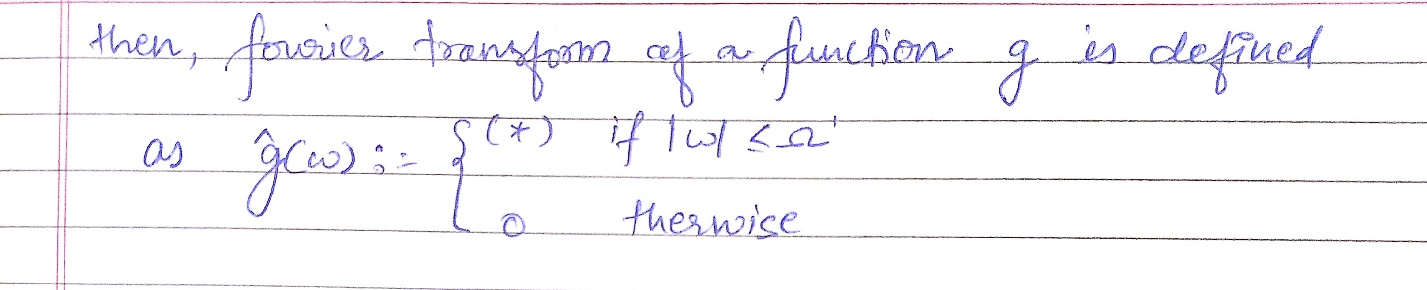 then, fourier transform of a function g is defined
as ĝ(ω) := { (*) if |ω| ≤ Ω'
0 therwise